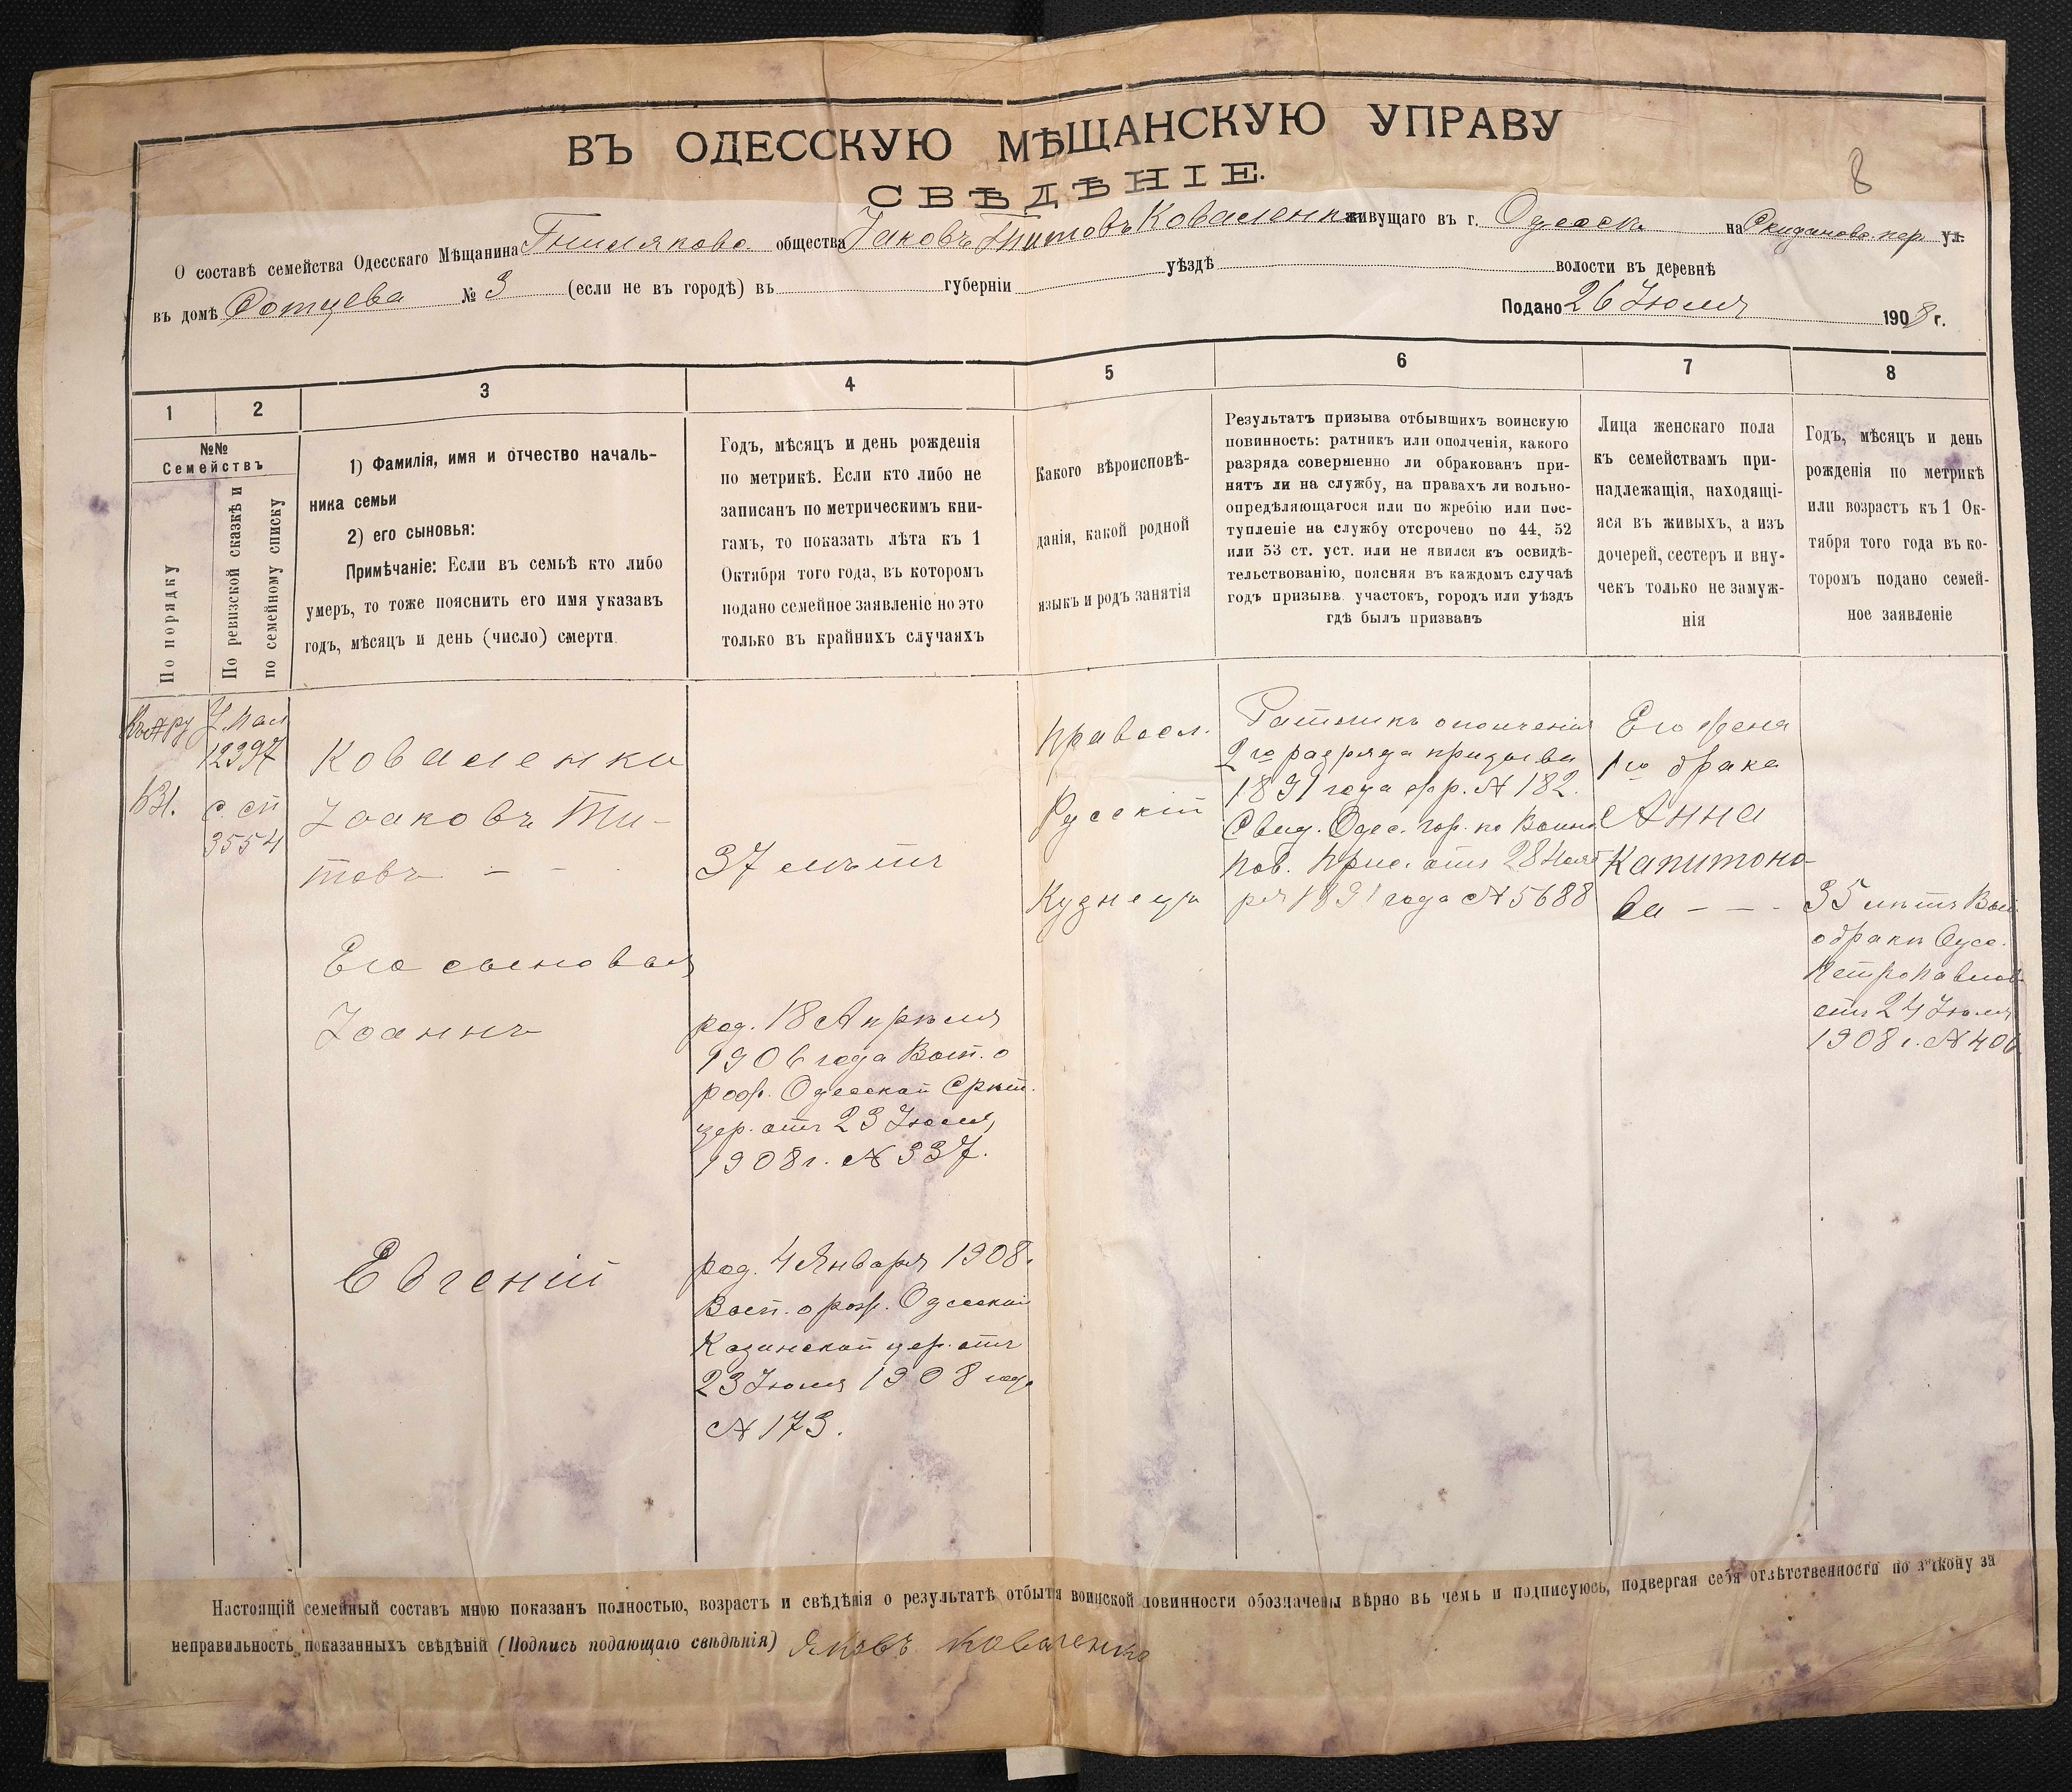 ВЪ ОДЕССКУЮ МѢЩАНСКУЮ УПРАВУ
СВѢДѢНІЕ.
8
О составѣ семейства Одесскаго Мѣщанина Гниляково общества Іаковъ Титовъ Коваленко живущаго въ г. Одесса на Скидановс. пер. ул.
въ домѣ № 3 (если не въ городѣ) въ губерніи уѣздѣ волости въ деревнѣ
Подано 26 Іюля 1908 г.
1 2 3 4 5 6 7 8
№№ Семействъ
По порядку
По ревизской сказкѣ и
по семейному списку
1) Фамилія, имя и отчество началь-
ника семьи
2) его сыновья:
Примѣчаніе: Если въ семьѣ кто либо
умеръ, то тоже пояснить его имя указавъ
годъ, мѣсяцъ и день (число) смерти
Годъ, мѣсяцъ и день рожденія
по метрикѣ. Если кто либо не
записанъ по метрическимъ кни-
гамъ, то показать лѣта къ 1
Октября того года, въ которомъ
подано семейное заявленіе но это
только въ крайнихъ случаяхъ
Какого вѣроисповѣ-
данія, какой родной
языкъ и родъ занятія
Результатъ призыва отбывшихъ воинскую
повинность: ратникъ или ополченія, какого
разряда совершенно ли обракован при-
нятъ ли на службу, на правахъ ли вольно-
опредѣляющагося или по жребію или пос-
тупленіе на службу отсрочено по 44, 52
или 53 ст. уст. или не явился къ освидѣ-
тельствованію, поясняя въ каждомъ случаѣ
годъ призыва участокъ, городъ или уѣздъ
гдѣ былъ призванъ
Лица женскаго пола
къ семействамъ при-
надлежащія, находящі-
яся въ живыхъ, а изъ
дочерей, сестеръ и вну-
чекъ только не замуж-
нія
Годъ, мѣсяцъ и день
рожденія по метрикѣ
или возрастъ къ 1 Ок-
тября того года въ ко-
торомъ подано семей-
ное заявленіе
631.
12397
с. сп
3554
Коваленко
Іоаковъ Ти-
товъ - -
37 лѣтъ
Правосл.
Русскій
Кузнецъ
Ратникъ ополченія
2го разряда призыва
1891 года жр. № 182.
Свид. Одес. гор. по Воинс
пов. прис. отъ 28 Нояб
ря 1891 года № 5688
Его жена
1го брака
Анна
Капитоно-
ва - - -
35 лѣтъ Вып.
о бракѣ Одес.
Петропавлов.
отъ 24 Іюля
1908 г. № 406
Его сыновья
Іоаннъ
род. 18 Апрѣля
1906 года Вып. о
рож. Одесской Срѣт.
цер. отъ 23 Іюля
1908 г. № 337.
Евгеній
род. 4 Января 1908 г.
Вып. о рож. Одесской
Казанской цер. отъ
23 Іюля 1908 года
№ 173.
Настоящій семейный составъ мною показанъ полностью, возрастъ и свѣдѣнія о результатѣ отбытя воинской повинности обозначены вѣрно въ чемъ и подписуюсь, подвергая себя отвѣтственности по закону за
неправильность показанныхъ свѣдѣній (Подпись подающаго свѣдѣнія) Яковъ Коваленко